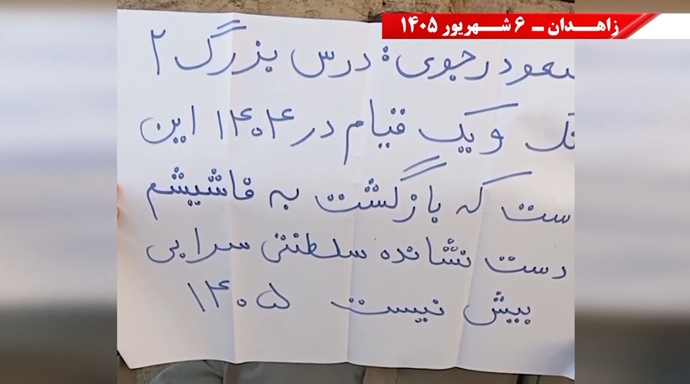 زاهدان ـ ۶ شهریور ۱۴۰۵
سعود رجوی: درس بزرگ ۲
نگ و یک قیام در ۱۴۰۴ این
ست که بازگشت به فاشیسم
دست نشانده سلطنتی سرابی
بیش نیست ۱۴۰۵